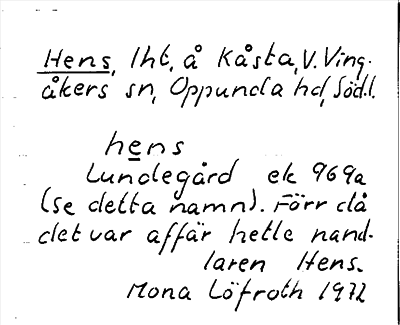 Hens, lht, å Kåsta, V. Ving-
åkers sn, Oppunda hd, Södl.
hens
Lundegård ek 969a
(se detta namn). Förr då
det var affär hette hand-
laren Hens.
Mona Löfroth 1972